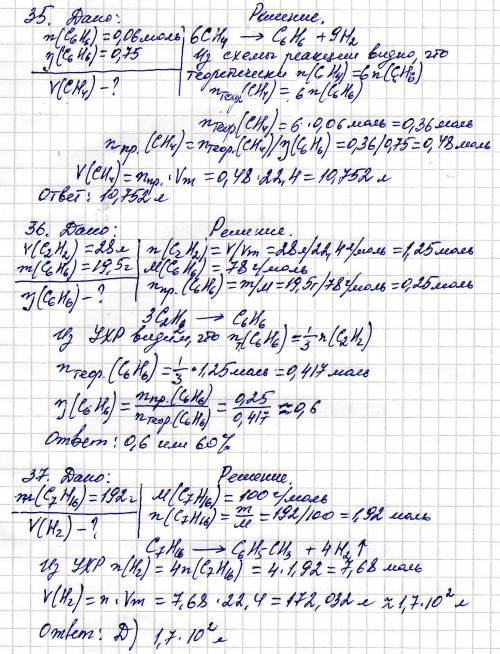 35. Дано: Решение.
n(C6H6)=0,06моль 6CH4 → C6H6 + 9H2
η(C6H6)=0,75 Из схемы реакции видно, что
V(CH4) - ? теоретически n(CH4)=6n(C6H6)
nтеор.(CH4) = 6 n(C6H6)
nтеор.(CH4) = 6 · 0,06 моль = 0,36 моль
nпр.(CH4) = nтеор.(CH4)/η(C6H6) = 0,36/0,75 = 0,48 моль
V(CH4) = nпр. · Vm = 0,48 · 22,4 = 10,752 л
Ответ: 10,752 л
36. Дано: Решение.
V(C2H2) = 28 л n(C2H2) = V/Vm = 28л/22,4 л/моль = 1,25 моль
m(C6H6) = 19,5г M(C6H6) = 78 г/моль
η(C6H6) - ? nпр.(C6H6) = m/M = 19,5г/78г/моль = 0,25 моль
3C2H2 → C6H6
Из УХР видим, что n(C6H6) = 1/3 n(C2H2)
nтеор.(C6H6) = 1/3 · 1,25 моль = 0,417 моль
η(C6H6) = nпр.(C6H6)/nтеор.(C6H6) = 0,25/0,417 ≈ 0,6
Ответ: 0,6 или 60%
37. Дано: Решение.
m(C7H16) = 192 г M(C7H16) = 100 г/моль
V(H2) - ? n(C7H16) = m/M = 192/100 = 1,92 моль
C7H16 → C6H5CH3 + 4H2↑
Из УХР n(H2) = 4n(C7H16) = 4 · 1,92 = 7,68 моль
V(H2) = n · Vm = 7,68 · 22,4 = 172,032 л ≈ 1,7·10² л
Ответ: D) 1,7·10² л